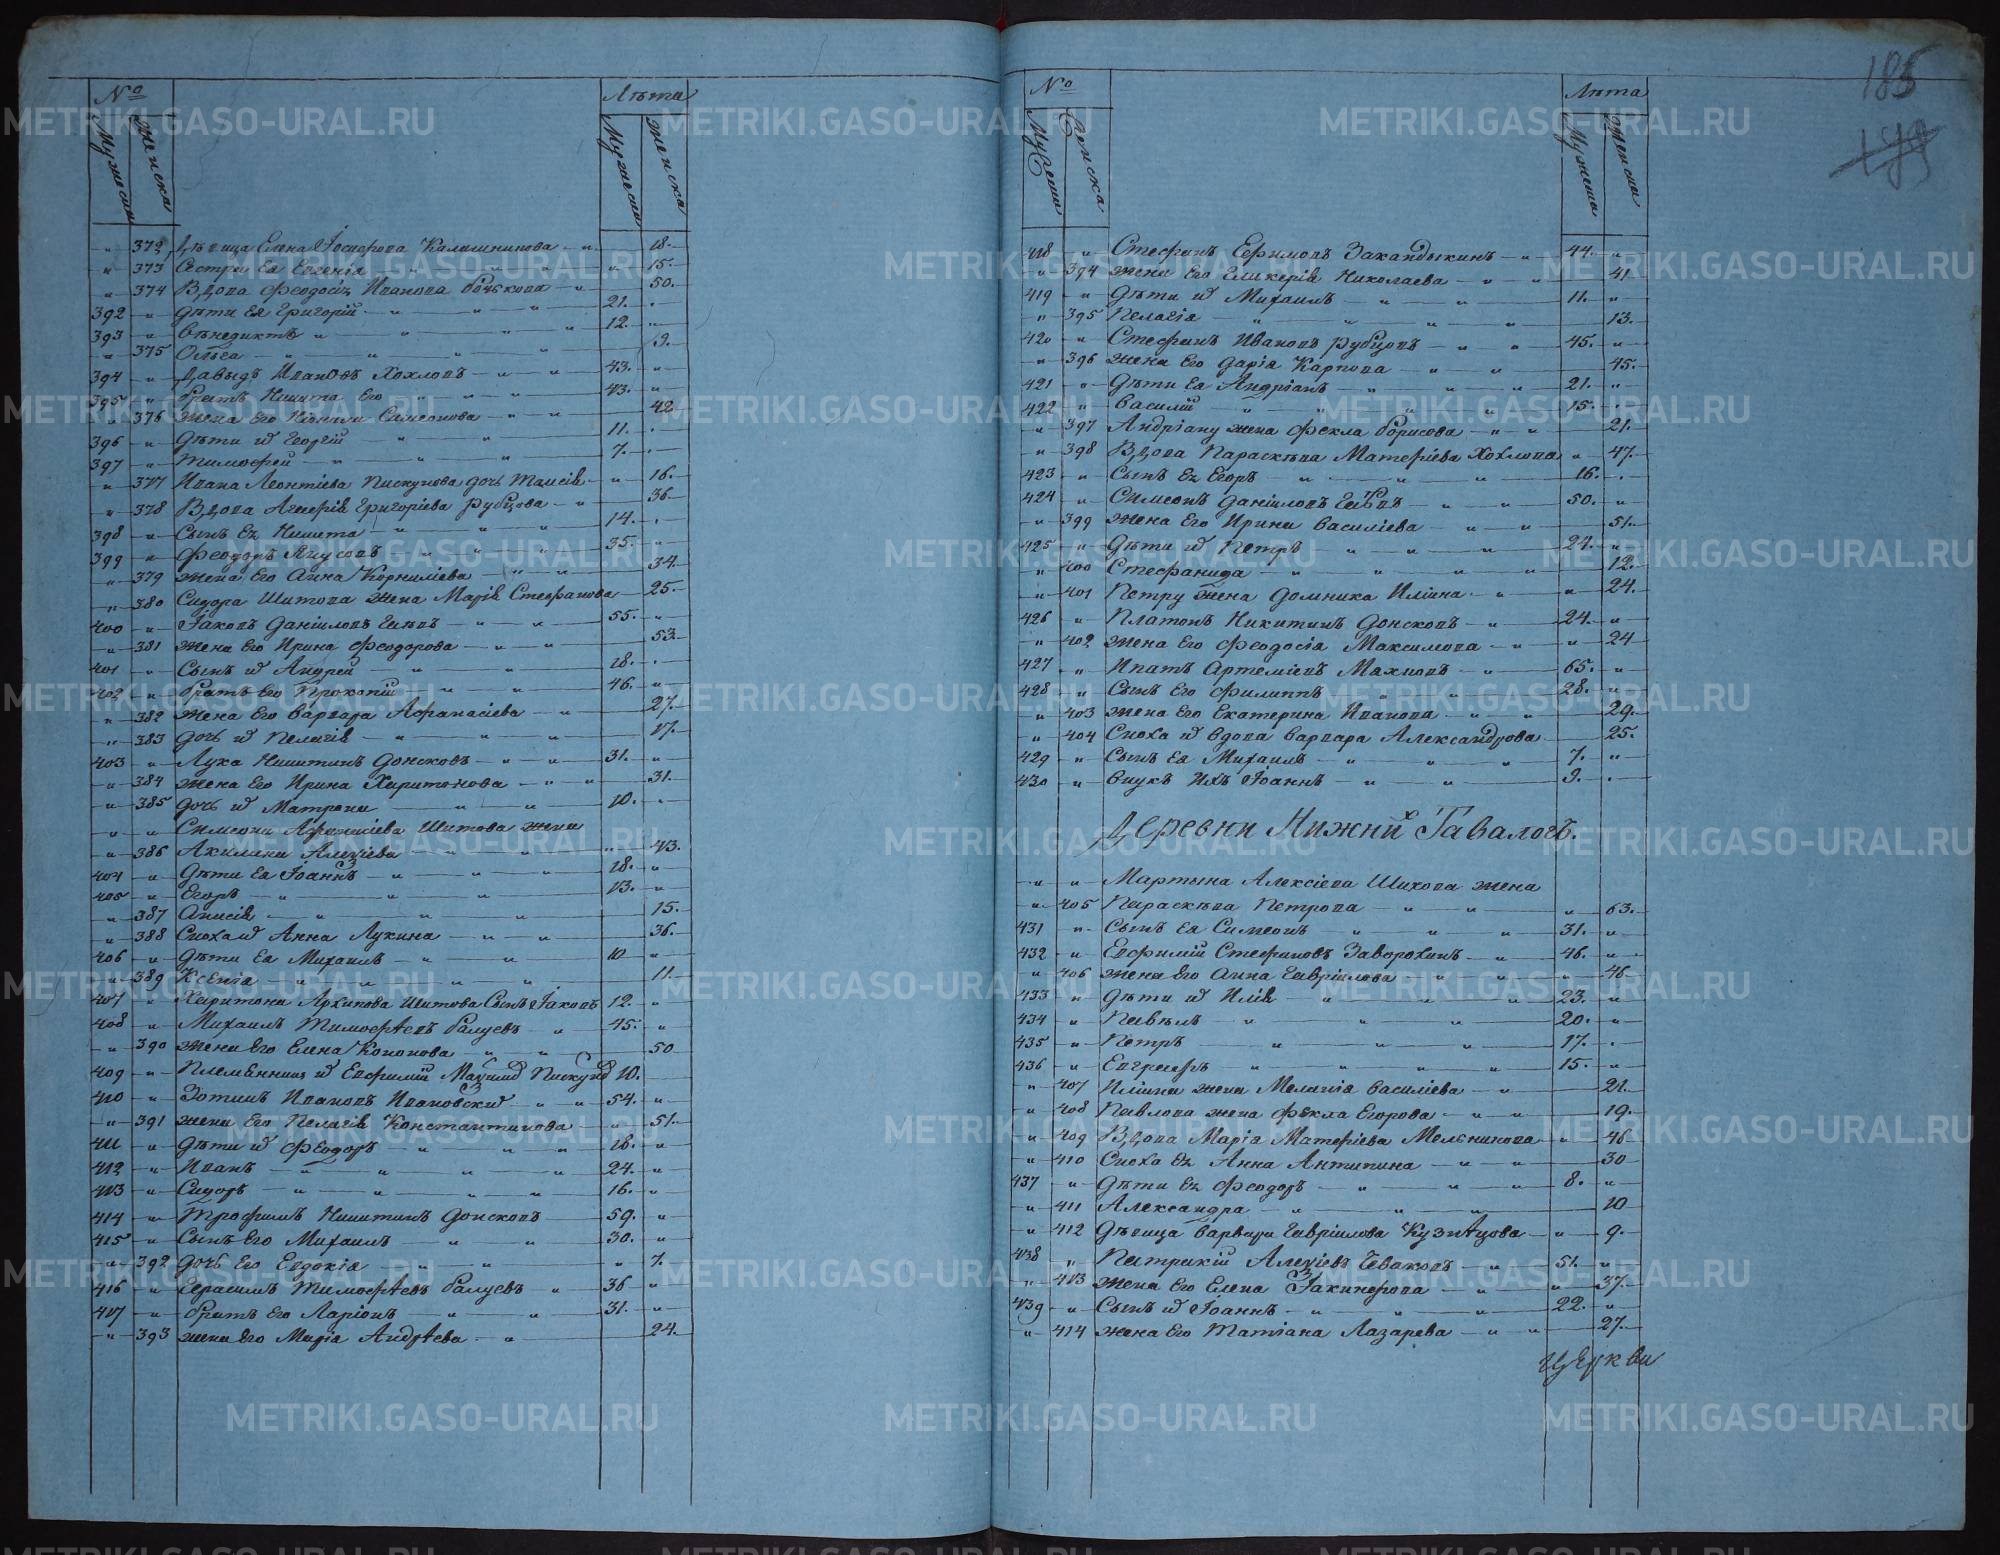 № Лѣта
Мужеска Женска Мужеска Женска
„ 372 Дѣвица Елена Іосифова Калашникова — „ 18.
„ 373 Сестра Ея Евгенія „ „ „ „ 15.
„ 374 Вдова Феодосія Иванова „ 50.
392 „ Дѣти Ея Григорій — „ — „ — „ 21. „
393 „ Венедиктъ „ — „ — „ 12. „
„ 375 Ольга — „ — „ — „ 9.
394 „ Давыдъ Ивановъ Хохловъ — „ — „ 43. „
395 „ Братъ Никита Его „ „ „ 43. „
„ 376 Жена Его Самсонова — „ — „ 42
396 „ Дѣти Георгій „ „ 11. „
397 „ Тимофей — „ — „ — „ 7. „
„ 377 Ивана Леонтіева Пискунова дочь Таисія — „ 16.
„ 378 Вдова Григоріева Рубцова — „ 36
398 „ Сынъ Ея Никита „ „ „ 14. „
399 „ Феодоръ „ „ „ 35. „
„ 379 Жена Его Анна Корниліева — „ — „ 34.
„ 380 Сидора Шитова Жена Марія Стефанова — 25.
400 „ Іаковъ Даніиловъ — „ — „ 55. „
„ 381 Жена Его Ирина Феодорова — „ — „ 53.
401 „ Сынъ Андрей „ „ 18. „
402 „ Братъ Его Прокопій „ „ 46. „
„ 382 Жена Его Варвара Афанасіева — „ 27.
„ 383 Дочь Пелагія — „ — „ — „ 17.
403 „ Лука Никитинъ Донсковъ — „ — „ 31. „
„ 384 Жена Его Ирина Харитонова — „ — „ 31.
„ 385 Дочь Матрона — „ — „ 10. „
„ „ Симеона Афанасіева Шитова Жена
„ 386 Акилина Алексіева — „ — „ „ 43.
404 „ Дѣти Ея Іоаннъ — „ — „ — „ 18. „
405 „ Егоръ — „ — „ — „ 13. „
„ 387 Анисія — „ — „ — „ 15.
„ 388 Сноха Анна Лукина — „ — „ 36.
406 „ Дѣти Ея Михаилъ — „ — „ 10 „
„ 389 Ксенія „ „ „ „ 11.
407 „ Харитона Архипова Шитова Сынъ Іаковъ 12. „
408 „ Михаилъ Тимофѣевъ Балуевъ — „ 45. „
„ 390 Жена Его Елена Кононова — „ — „ 50
409 „ Племянникъ Евфимій 10.
410 „ Зотикъ Ивановъ Ивановскій — „ — „ 54. „
„ 391 Жена Его Пелагія Константинова — „ 51.
411 „ Дѣти Феодоръ — „ — „ — „ 18. „
412 „ Иванъ — „ — „ — „ — „ 24. „
413 „ Сидоръ — „ — „ — „ — „ 16. „
414 „ Трофимъ Никитинъ Донсковъ — 59. „
415 „ Сынъ Его Михаилъ — „ — „ 30. „
„ 392 Дочь Его Евдокія „ „ „ 7.
416 „ Герасимъ Тимофѣевъ Балуевъ „ 36 „
417 „ Братъ Его Ларіонъ — „ — „ 31. „
„ 393 Жена Его Марія Андрѣева — „ 24.
185
№ Лѣта
Мужеска Женска Мужеска Женска
418 „ Стефанъ Ефимовъ Закандыкинъ — „ 44. „
„ 394 Жена Его Гликерія Николаева — „ — „ 41
419 „ Дѣти Михаилъ — „ — „ 11. „
„ 395 Пелагія — „ — „ — „ — „ 13.
420 „ Стефанъ Ивановъ Рубцовъ — „ — „ 45. „
„ 396 Жена Его Дарія Карпова — „ — „ 45.
421 „ Дѣти Ея Андріанъ — „ — „ — „ 21. „
422 „ Василій „ „ „ „ 15. „
„ 397 Андріану жена Фекла Борисова — „ — „ 21.
„ 398 Вдова Параскѣва Матфіева Хохлова „ 47.
423 „ Сынъ Ея Егоръ — „ — „ — „ 16. „
424 „ Симеонъ Даніиловъ — „ — „ 50. „
„ 399 Жена Его Ирина Василіева — „ — „ 51.
425 „ Дѣти Петръ — „ — „ — „ 24. „
„ 400 Стефанида — „ — „ — „ — „ 12.
„ 401 Петру Жена Домника Иліина — „ „ 24.
426 „ Платонъ Никитинъ Донсковъ — „ 24. „
„ 402 Жена Его Феодосія Максимова — „ „ 24
427 „ Ипатъ Артеміевъ Махновъ — „ 65. „
428 „ Сынъ Его Филиппъ „ „ „ 28. „
„ 403 Жена Его Екатерина Иванова — „ — „ 29.
„ 404 Сноха вдова Варвара Александрова — 25.
429 „ Сынъ Ея Михаилъ — „ — „ — „ 7. „
430 „ Внукъ Ихъ Іоаннъ — „ — „ 9. „
Деревни Нижнихъ Таваловъ.
„ „ Мартына Алексіева Шихова жена
„ 405 Параскѣва Петрова — „ — „ „ 63.
431 „ Сынъ Ея Симеонъ — „ — „ — „ 31. „
432 „ Евфимій Стефановъ Заворохинъ — „ 46. „
„ 406 Жена Его Анна Гавріилова „ „ „ 46
433 „ Дѣти Илія „ — „ — „ 23. „
434 „ Павелъ „ „ „ 20. „
435 „ Петръ — „ — „ — „ 17. „
436 „ Евграфъ — „ — „ — „ 15. „
„ 407 Иліина жена Мелагія Василіева — „ 21.
„ 408 Павлова жена Фекла Егорова — „ — „ 19.
„ 409 Вдова Марія Матфіева Мельникова „ 46
„ 410 Сноха Ея Анна Антипина — „ — „ 30
437 „ Дѣти Ея Феодоръ — „ — „ — „ 8. „
„ 411 Александра — „ — „ — „ 10
„ 412 Дѣвица Варвара Гавріилова Кузнѣцова — „ 9.
438 „ Патрикій Алексіевъ — „ 51. „
„ 413 Жена Его Елена — „ „ 37.
439 „ Сынъ Іоаннъ — „ — „ — „ 22. „
„ 414 Жена Его Татіана Лазарева — „ — „ 27.
Церкви